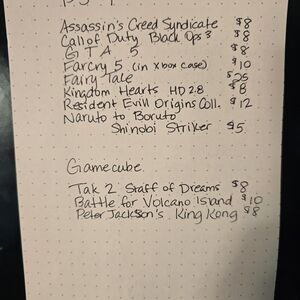 Assassin's Creed Syndicate $8
Call of Duty Black Ops 3 $8
G T A 5 $8
Farcry 5 (in Xbox case) $10
Fairy Tale
Kingdom Hearts HD 2.8 $8
Resident Evill Origins Coll. $12
Naruto to Boruto
Shinobi Striker $5
Gamecube
Tak 2 Staff of Dreams $8
Battle for Volcano Island $10
Peter Jackson's King Kong $8